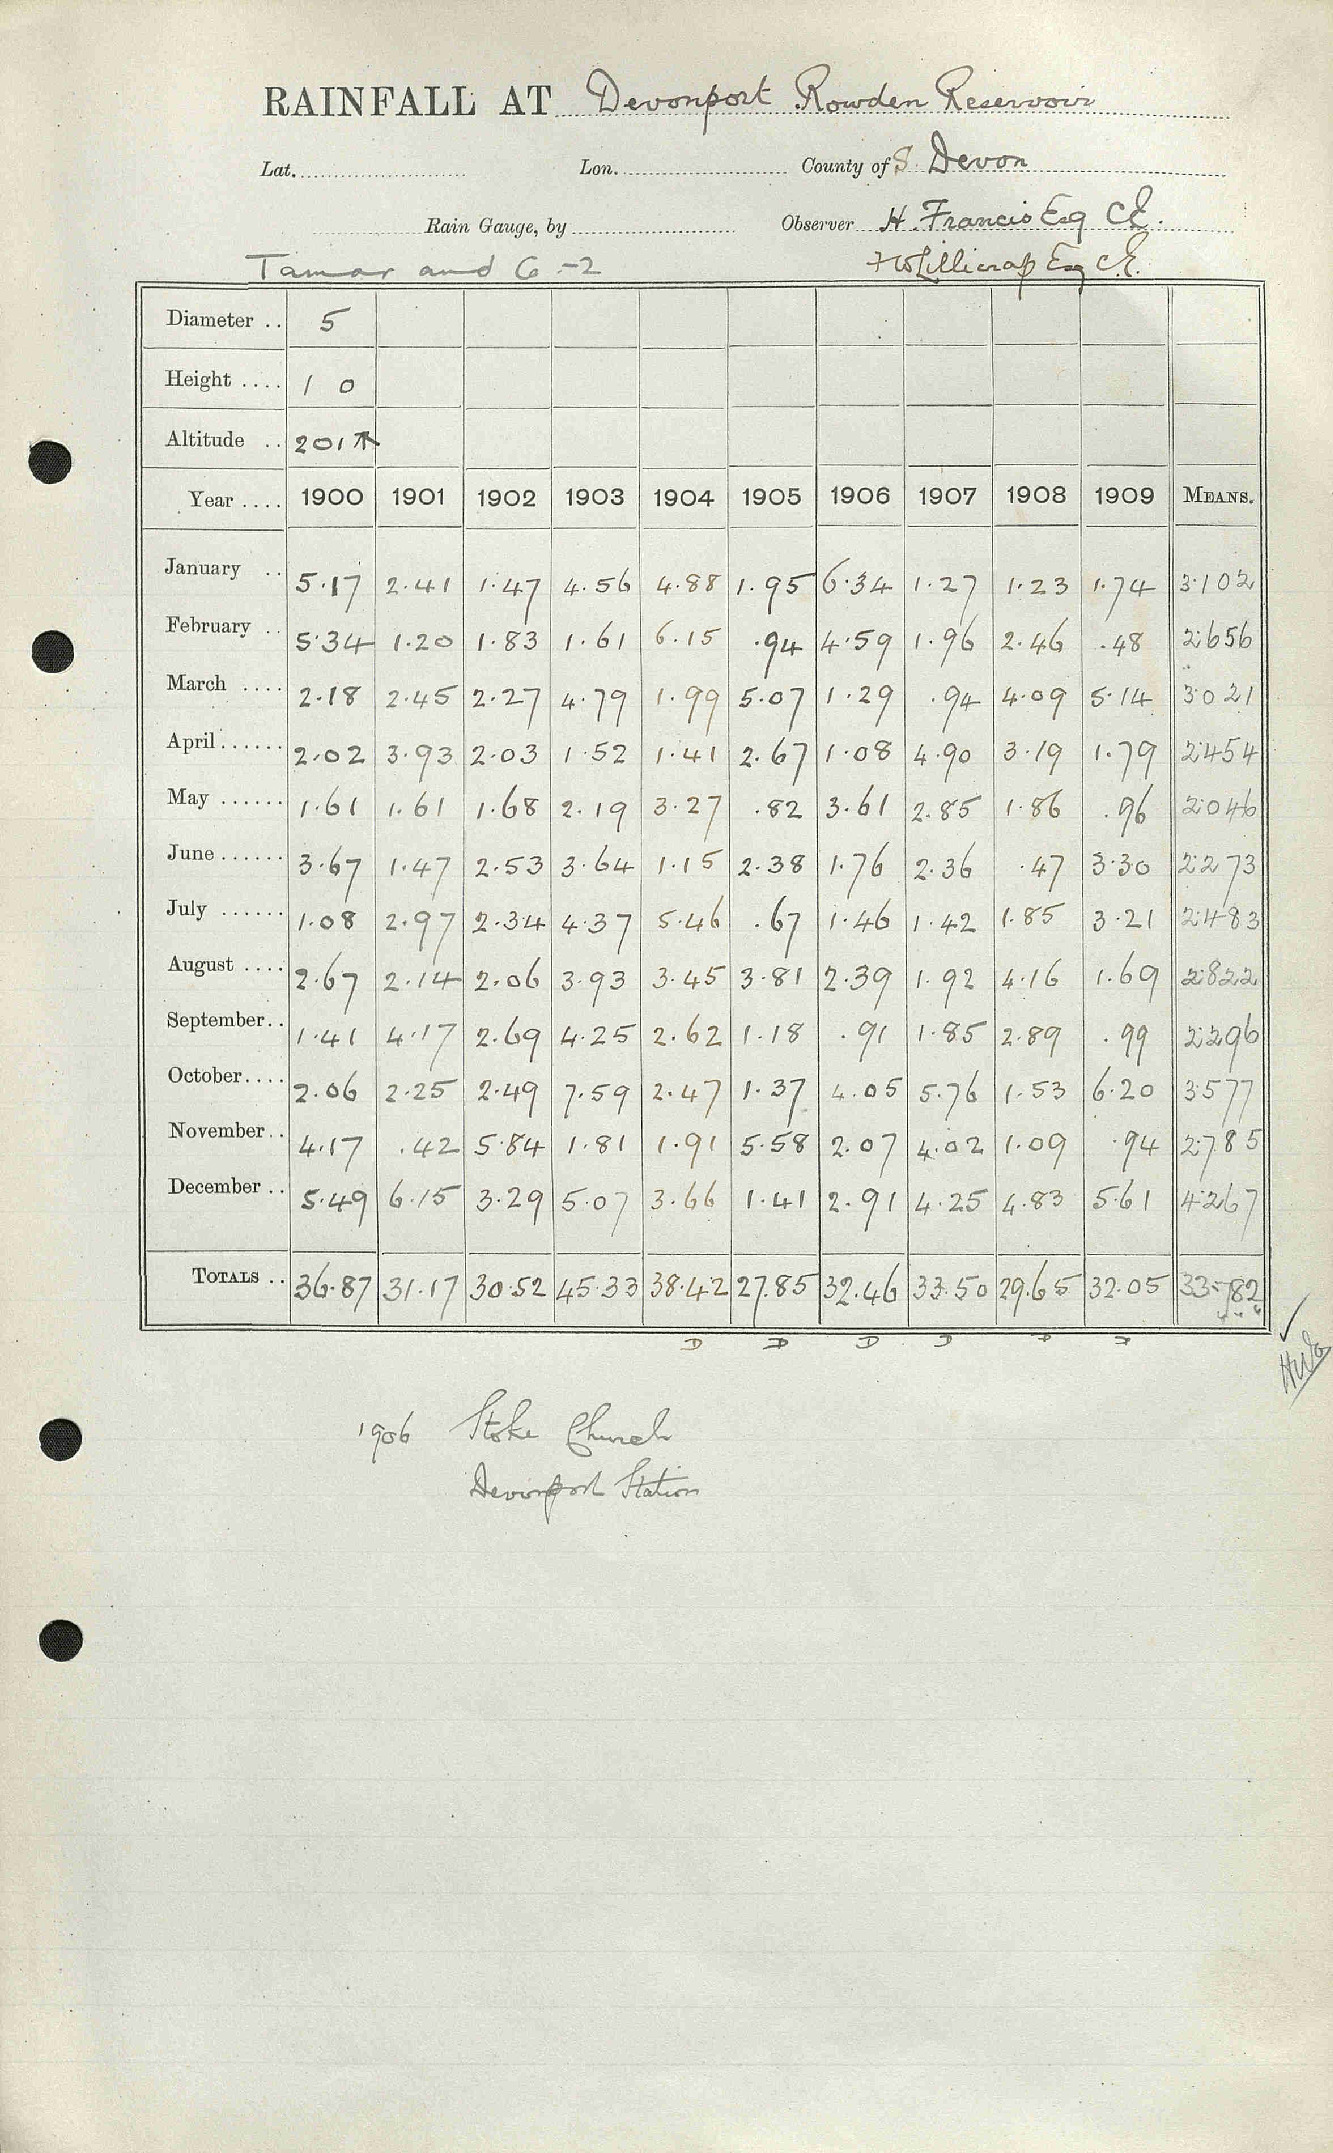 RAINFALL AT Devonport Rowden Reservoir
Lat. Lon. County of S. Devon
Rain Gauge, by Observer H. Francis Esq CE.
Tamar and 6 -2 Lillicrap Esq C.E.
Diameter .. 5
Height .... 1 0
Altitude .. 201
Year .... 1900 1901 1902 1903 1904 1905 1906 1907 1908 1909 MEANS.
January .. 5.17 2.41 1.47 4.56 4.88 1.95 6.34 1.27 1.23 1.74 3.102
February .. 5.34 1.20 1.83 1.61 6.15 .94 4.59 1.96 2.46 .48 2.656
March .... 2.18 2.45 2.27 4.79 1.99 5.07 1.29 .94 4.09 5.14 3.021
April ...... 2.02 3.93 2.03 1.52 1.41 2.67 1.08 4.90 3.19 1.79 2.454
May ...... 1.61 1.61 1.68 2.19 3.27 .82 3.61 2.85 1.86 .96 2.046
June ...... 3.67 1.47 2.53 3.64 1.15 2.38 1.76 2.36 .47 3.30 2.273
July ...... 1.08 2.97 2.34 4.37 5.46 .67 1.46 1.42 1.85 3.21 2.483
August .... 2.67 2.14 2.06 3.93 3.45 3.81 2.39 1.92 4.16 1.69 2.822
September .. 1.41 4.17 2.69 4.25 2.62 1.18 .91 1.85 2.89 .99 2.296
October .... 2.06 2.25 2.49 7.59 2.47 1.37 4.05 5.76 1.53 6.20 3.577
November .. 4.17 .42 5.84 1.81 1.91 5.58 2.07 4.02 1.09 .94 2.785
December .. 5.49 6.15 3.29 5.07 3.66 1.41 2.91 4.25 4.83 5.61 4.267
TOTALS .. 36.87 31.17 30.52 45.33 38.42 27.85 32.46 33.50 29.65 32.05 33.782
D D D D D D
1906 Stoke Church
Devonport Station